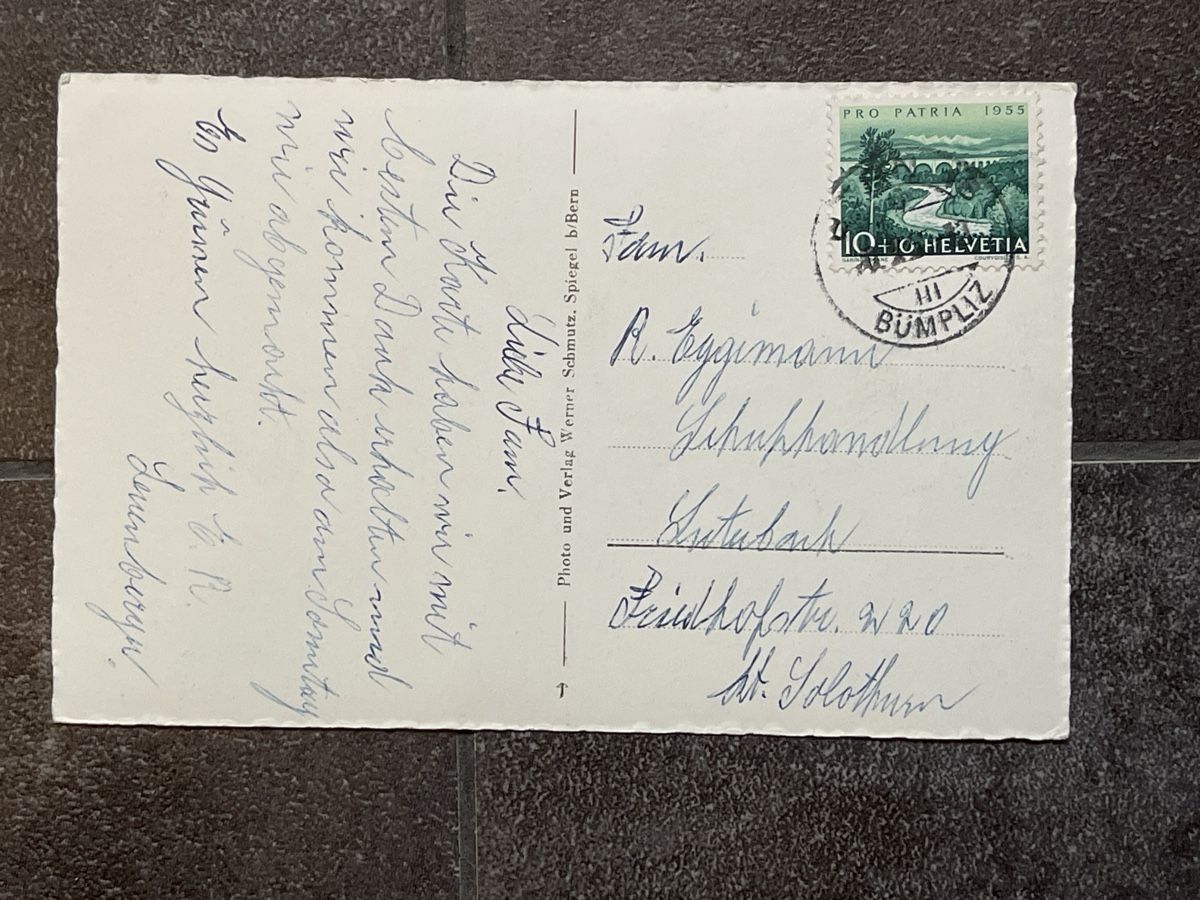 Liebe Fam.
Die Karte haben wir mit
besten Dank erhalten und
wir kommen also am Samstag
wie abgemacht.
Es Grüssen herzlich E. R.
Leuenberger.
Photo und Verlag Werner Schmutz, Spiegel b/Bern
PRO PATRIA 1955
10+10 HELVETIA
COURVOISIER S.A.
III
BÜMPLIZ
Fam.
R. Eggimann
Schuhhandlung
Luterbach
Friedhofstr. 220
Kt. Solothurn